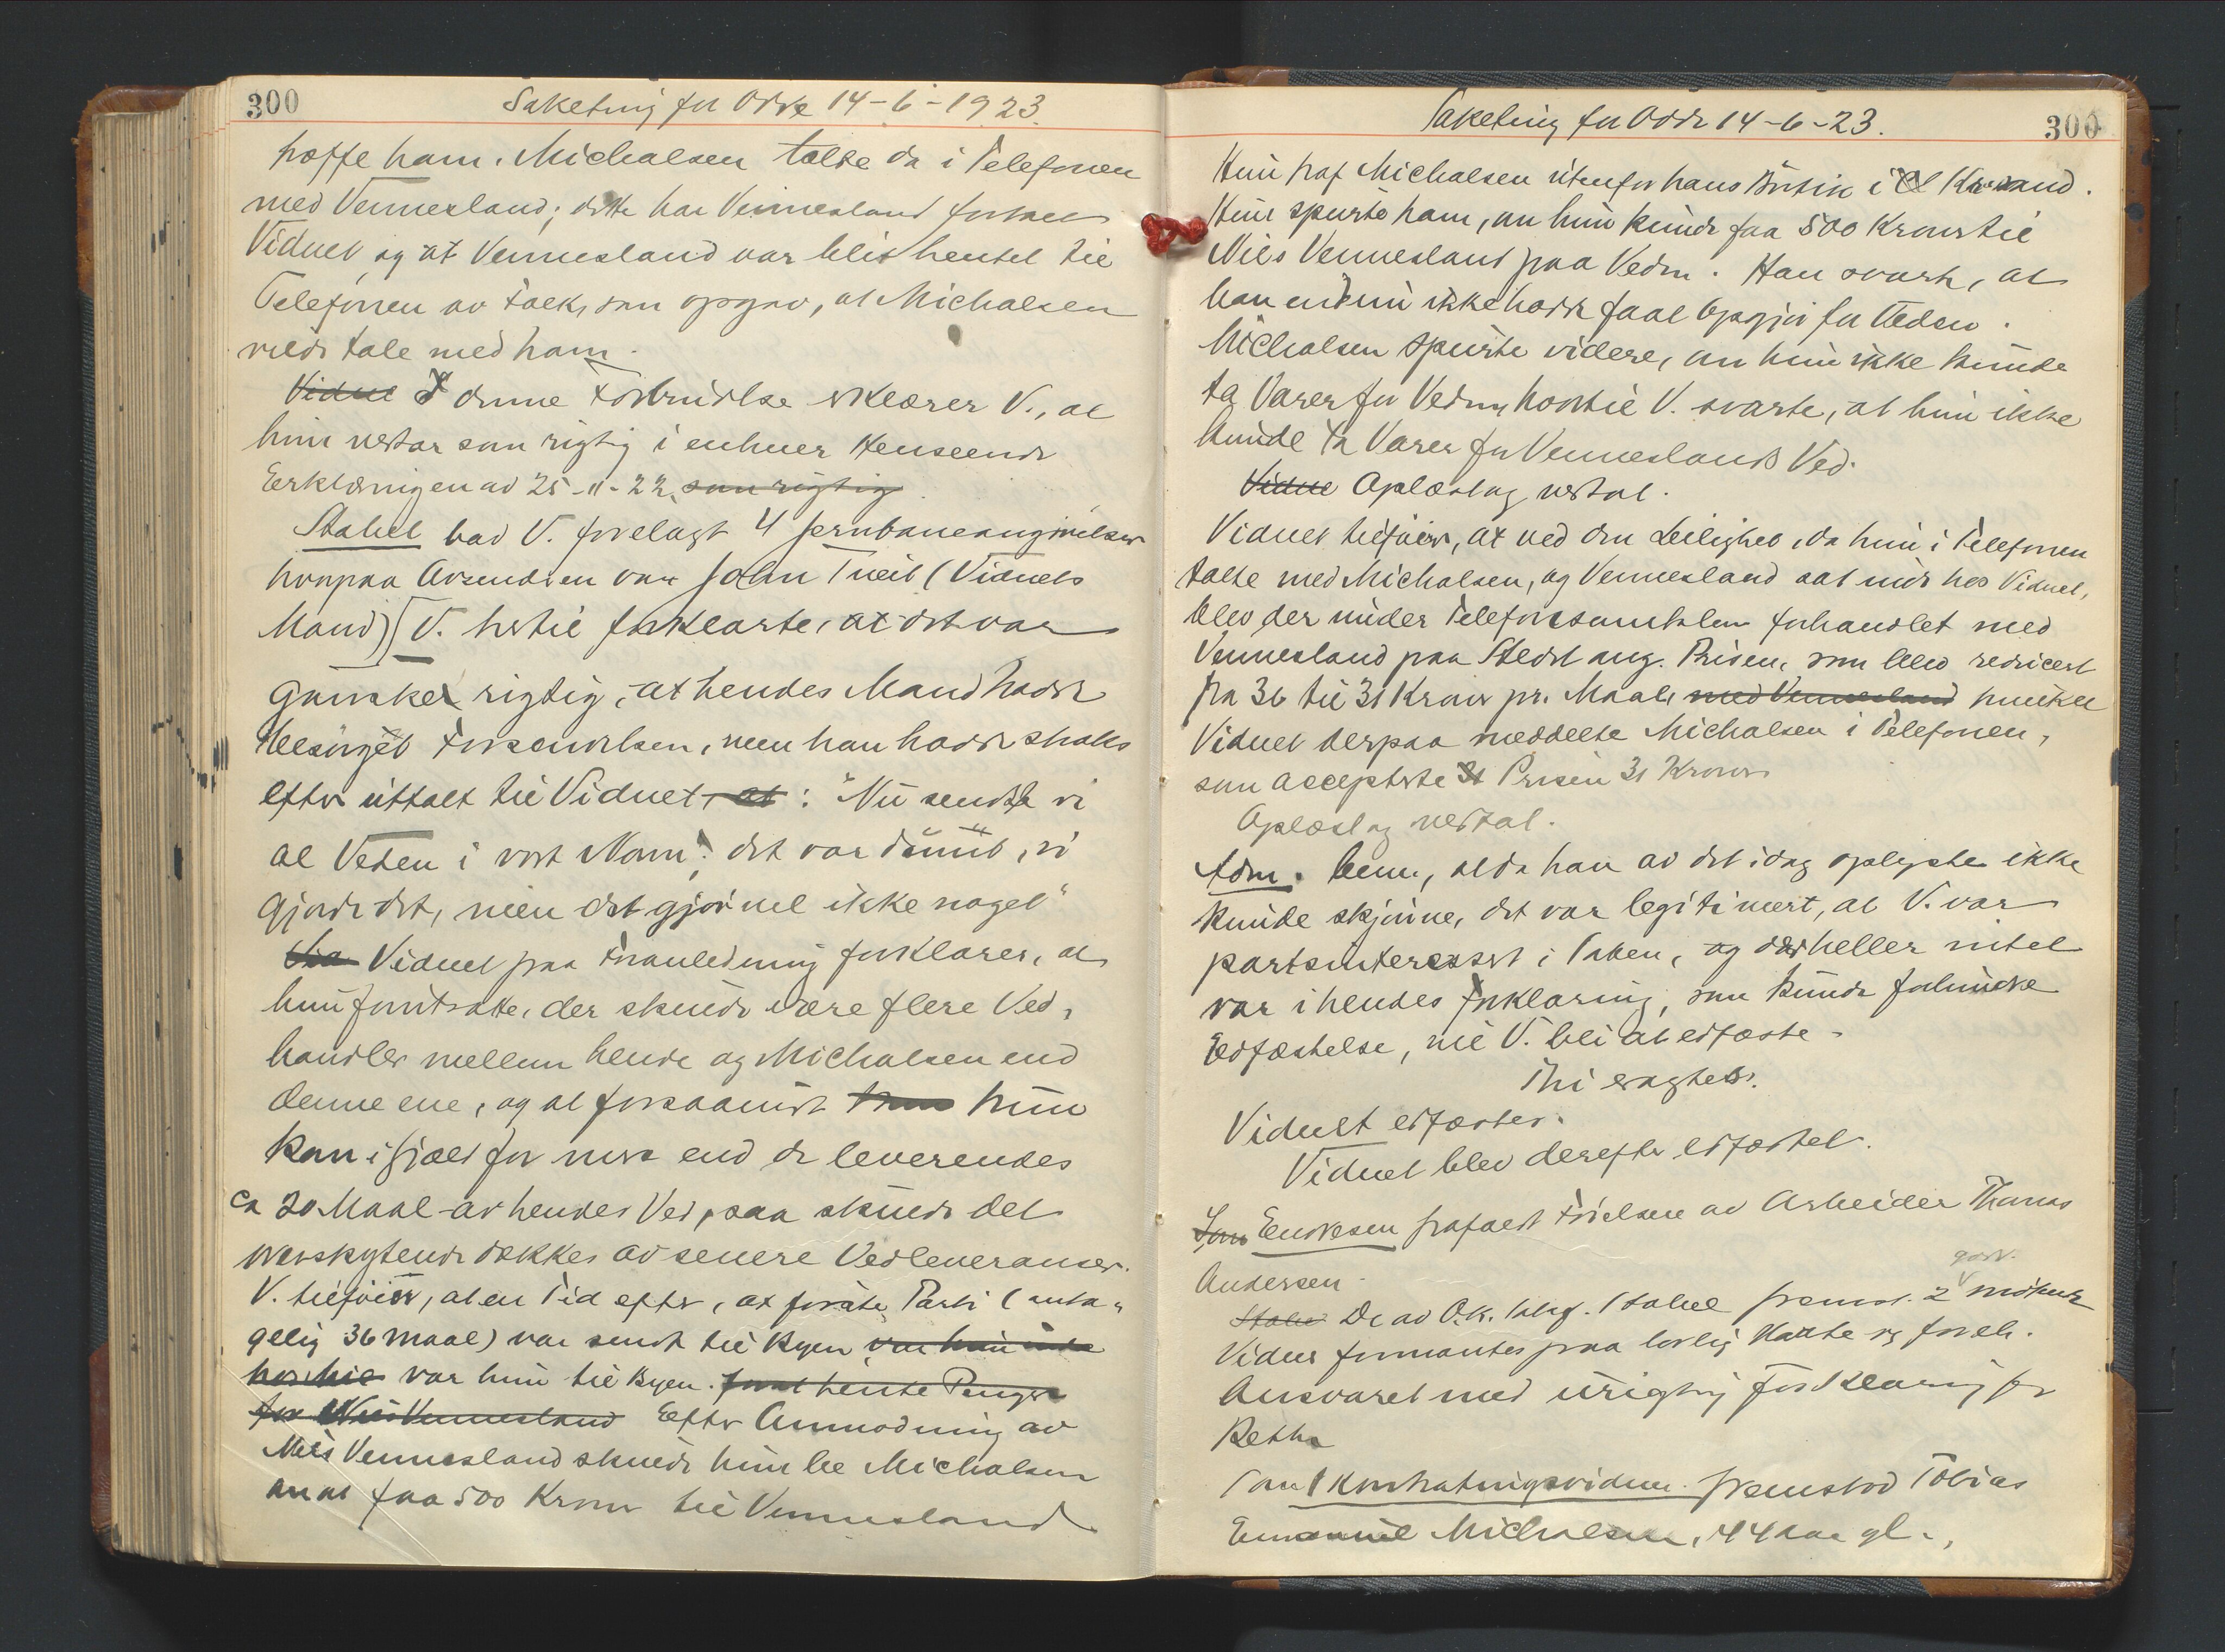 300
Saketing for Odde 14-6-1923.
træffe ham. Michalsen talte da i Telefonen
med Vennesland; dette har Vennesland fortalt
Vidnet og at Vennesland var blit hentet til
Telefonen av Folk, som opgav, at Michalsen
vilde tale med ham.
Vidnet I denne Forbindelse erklærer V., at
hun vedtar som rigtig i enhver Henseende
Erklæringen av 25-11-22, som rigtig.
Stabel bad V. forelagt 4 Jernbaneangivelser
hvorpaa Avsenderen var John Tveit (Vidnets
Mand) V. hertil forklarte, at det var
ganske rigtig, at hendes Mand hadde
besørget Forsendelsen, men han hadde straks
efter uttalt til Vidnet, at: "Nu sendte vi
al Veden i vort Navn; det var dumt, vi
gjorde det, men det gjør vel ikke noget"
Vidnet paa Foranledning forklarer, at
hun forutsatte, der skulde være flere Ved-
handler mellem hende og Michalsen end
denne ene, og at forsaavidt hun
kom i Gjæld for mere end de leverendes
ca 20 Maal av hendes Ved, saa skulde det
overskytende dækkes av senere Vedleveranser.
V. tilføier, at en Tid efter, at første Parti (anta-
gelig 36 Maal) var sendt til Byen var hun inde
hos hie var hun til Byen. for at hente Penger
for Nils Vennesland Efter Anmodning av
Nils Vennesland skulde hun be Michalsen
om at faa 500 Kroner til Vennesland
Saketing for Odde 14-6-23.
300
Hun traf Michalsen utenfor hans Butik i Kr.sand.
Hun spurte ham, om hun kunde faa 500 Kroner til
Nils Vennesland paa Veden. Han svarte, at
han endnu ikke hadde faat Opgjør for Veden.
Michalsen spurte videre, om hun ikke kunde
ta Varer for Veden, hvortil V. svarte, at hun ikke
kunde ta Varer for Venneslands Ved.
Vidnet Oplæst og vedtat.
Vidnet tilføier, at ved den Leilighet, da hun i Telefonen
talte med Michalsen, og Vennesland sat inde hos Vidnet,
blev der under Telefonsamtalen forhandlet med
Vennesland paa Stedet ang. Prisen, som blev reducert
fra 36 til 31 Kroner pr. Maal, med Vennesland hvilket
Vidnet derpaa meddelte Michalsen i Telefonen,
som accepterte Prisen 31 Kroner
Oplæst og vedtat.
Adm. bem., at da han av det idag oplyste ikke
kunde skjønne, det var legitimert, at V. var
partsinteressert i Saken, og der heller intet
var i hendes Forklaring, som kunde forhindre
Edfæstelse, vil V. bli at edfæste.
Thi eragtes:
Vidnet edfæstes.
Vidnet blev derefter edfæstet.
Endresen frafaldt Førelsen av Arbeider Thomas
Andersen.
Stabel De av O.R. Sakf. Stabel fremst. 2 godv. møtende
Vidner formantes paa lovlig Maate og foreh.
Ansvaret med urigtig Forklaring for
Retten
Som 1 Kontratingsvidne. fremstod Tobias
Emanuel Michalsen, 44 aar gl.,